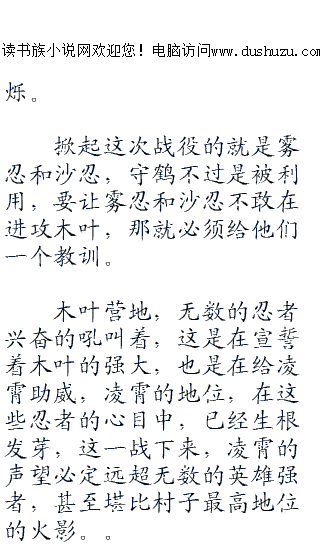 读书族小说网欢迎您！电脑访问www.dushuzu.com
烁。
掀起这次战役的就是雾
忍和沙忍，守鹤不过是被利
用，要让雾忍和沙忍不敢在
进攻木叶，那就必须给他们
一个教训。
木叶营地，无数的忍者
兴奋的吼叫着，这是在宣誓
着木叶的强大，也是在给凌
霄助威，凌霄的地位，在这
些忍者的心目中，已经生根
发芽，这一战下来，凌霄的
声望必定远超无数的英雄强
者，甚至堪比村子最高地位
的火影。。